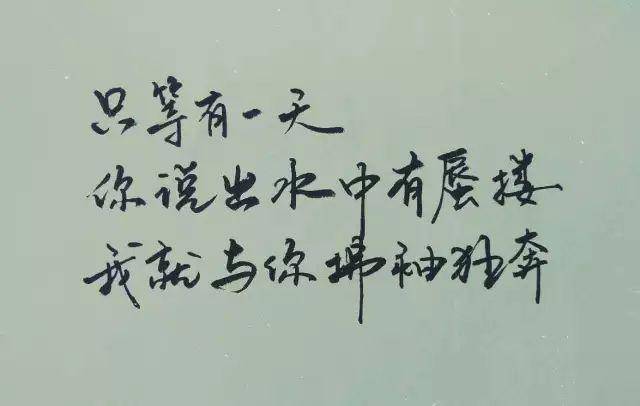 只等有一天
你说出水中有蜃搂
我就与你拂袖狂奔